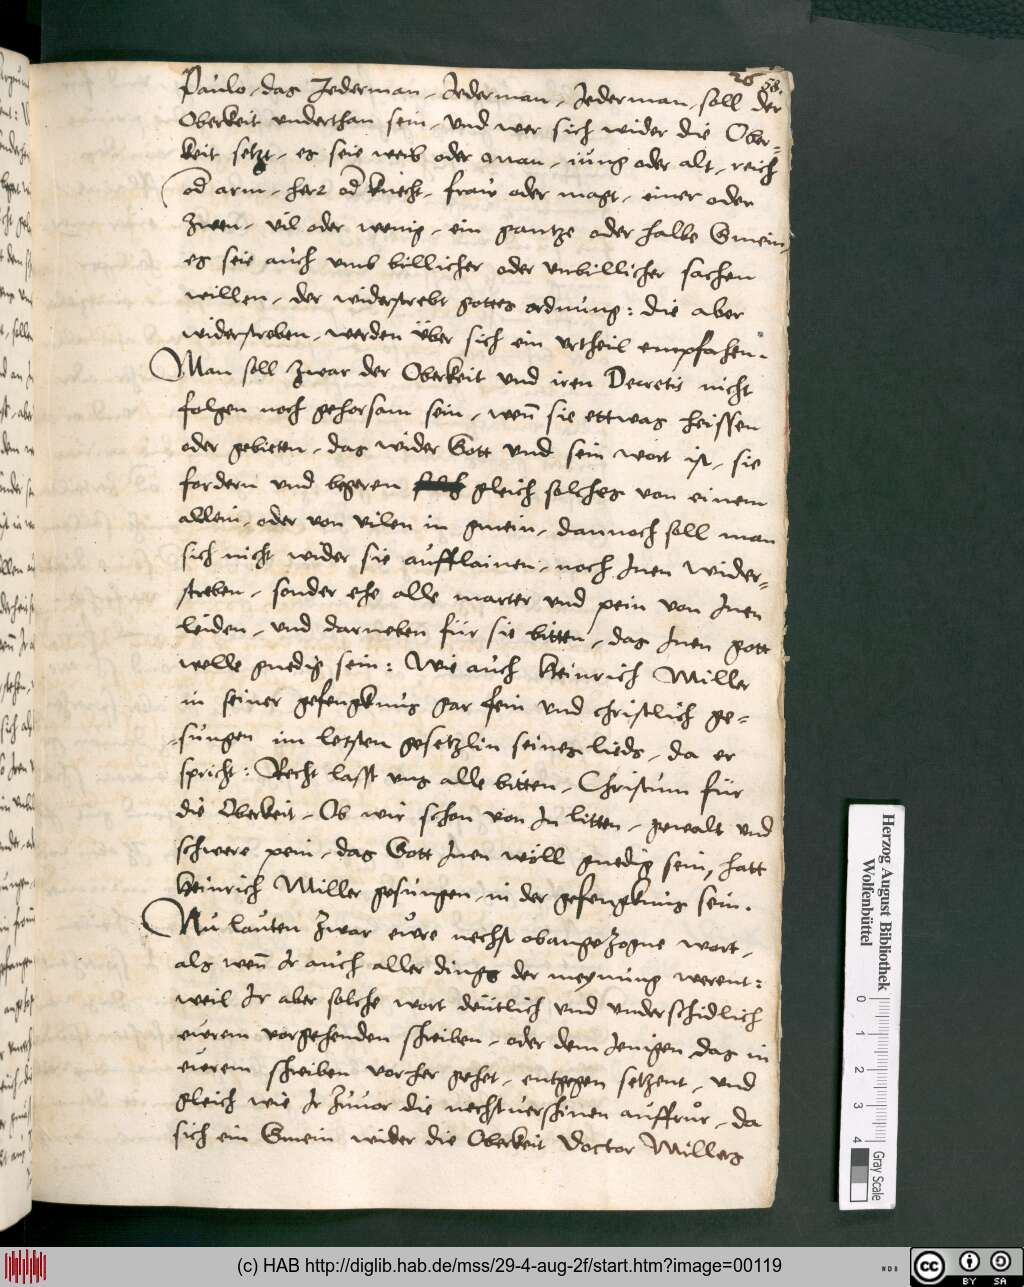 26 58.
Paulo, das Jederman, Jederman, Jederman, soll der
Oberkeit underthan sein, Und wer sich wider die Ober-
keit setzt, es seie weib oder Man, iung oder alt, reich
od arm, herr od knecht, fraw oder magt, einer oder
zwen, vil oder wenig, ein gantze oder halbe Gmein,
es seie auch umb billicher oder unbillicher sachen
willen, der widerstrebt gottes ordnung: die aber
widerstreben, werden über sich ein urtheil empfahen.
Man soll zwar der Oberkeit und iren Decretis nicht
folgen noch gehorsam sein, wen̄ sie ettwas heissen
oder gebieten, das wider Gott und sein wort ist, sie
fordern und begeren gleich solches von einem
allein, oder von vilen in gmein, dannoch soll man
sich nicht wider sie aufflainen, noch Inen wider-
streben, sonder ehe alle marter und pein von Inen
leiden, und darneben für sie bitten, das Inen gott
welle gnedig sein: Wie auch Heinrich Miller
in seiner gefengknus gar fein und christlich ge-
sungen im letsten gesetzlin seines lieds, da er
spricht: Recht lasst uns alle bitten, Christum für
die Oberkeit, Ob wir schon von In litten, gewalt und
schwere pein, das Gott Inen wöll gnedig sein, hatt
Heinrich Miller gesungen, in der gefengknus sein.
Nu lauten zwar ewre nechst obangezogne wort,
als wen̄ Ir auch aller dings der meynung werent:
weil Ir aber solche wort deutlich und underschidlich
ewrem vorgehenden schreiben, oder dem Jenigen das in
ewerem schreiben vorher gehet, entgegen setzent, und
gleich wie Ir zuvor die nechstverschinen auffrůr, da
sich ein Gmein wider die Oberkeit Doctor Millers
Herzog August Bibliothek
Wolfenbüttel
0 1 2 3 4
Gray Scale
(c) HAB http://diglib.hab.de/mss/29-4-aug-2f/start.htm?image=00119
WDB
cc BY SA